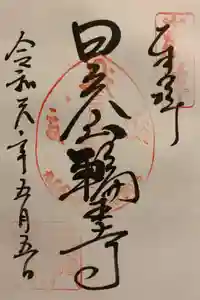 奉拝
日光山輪王寺
令和元年五月五日